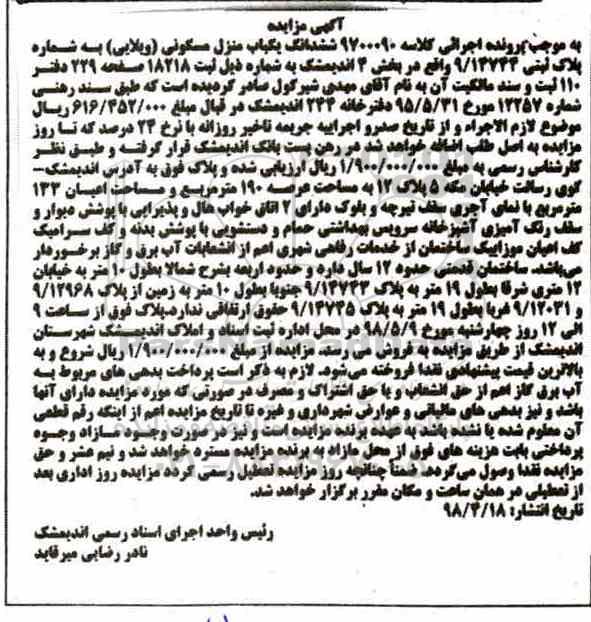 آگهی مزایده
به موجب پرونده اجرائی کلاسه ۹۷۰۰۰۹۰ ششدانگ یکباب منزل مسکونی (ویلایی) به شماره
پلاک ثبتی ۹/۱۴۷۴۴ واقع در بخش ۴ اندیمشک به شماره ذیل ثبت ۱۸۲۱۸ صفحه ۲۲۹ دفتر
۱۱۰ ثبت و سند مالکیت آن به نام آقای مهدی شیرگول صادر گردیده است که طبق سند رهنی
شماره ۱۲۲۵۷ مورخ ۹۵/۵/۳۱ دفترخانه ۲۴۴ اندیمشک در قبال مبلغ ۶۱۶/۴۵۲/۰۰۰ ریال
موضوع لازم الاجراء و از تاریخ صدور اجراییه جریمه تاخیر روزانه با نرخ ۲۴ درصد که تا روز
مزایده به اصل طلب اضافه خواهد شد در رهن پست بانک اندیمشک قرار گرفته و طبق نظر
کارشناس رسمی به مبلغ ۱/۹۰۰/۰۰۰/۰۰۰ ریال ارزیابی شده و پلاک فوق به آدرس اندیمشک-
کوی رسالت خیابان مکه ۵ پلاک ۱۲ به مساحت عرصه ۱۹۰ مترمربع و مساحت اعیان ۱۳۳
مترمربع با نمای آجری سقف تیرچه و بلوک دارای ۲ اتاق خواب هال و پذیرایی با پوشش دیوار و
سقف رنگ آمیزی آشپزخانه سرویس بهداشتی حمام و دستشویی با پوشش بدنه و کف سرامیک
کف اعیان موزاییک ساختمان از خدمات رفاهی شهری اعم از انشعابات آب برق و گاز برخوردار
می‌باشد. ساختمان قدمتی حدود ۱۲ سال دارد و حدود اربعه بشرح شمالا بطول ۱۰ متر به خیابان
۱۲ متری شرقا بطول ۱۹ متر به پلاک ۹/۱۴۷۴۳ جنوبا بطول ۱۰ متر به زمین از پلاک ۹/۱۲۹۶۸
و ۹/۱۲۰۳۱ غربا بطول ۱۹ متر به پلاک ۹/۱۴۷۴۵ حقوق ارتفاقی ندارد.پلاک فوق از ساعت ۹
الی ۱۲ روز چهارشنبه مورخ ۹۸/۵/۹ در محل اداره ثبت اسناد و املاک اندیمشک شهرستان
اندیمشک از طریق مزایده به فروش می رسد. مزایده از مبلغ ۱/۹۰۰/۰۰۰/۰۰۰ ریال شروع و به
بالاترین قیمت پیشنهادی نقدا فروخته می‌شود. لازم به ذکر است پرداخت بدهی های مربوط به
آب برق گاز اعم از حق انشعاب و یا حق اشتراک و مصرف در صورتی که مورد مزایده دارای آنها
باشد و نیز بدهی های مالیاتی و عوارض شهرداری و غیره تا تاریخ مزایده اعم از اینکه رقم قطعی
آن معلوم شده یا نشده باشد به عهده برنده مزایده است و نیز در صورت وجود مازاد وجوه
پرداختی بابت هزینه های فوق از محل مازاد به برنده مزایده مسترد خواهد شد و نیم عشر و حق
مزایده نقدا وصول می‌گردد. ضمناً چنانچه روز مزایده تعطیل رسمی گردد مزایده روز اداری بعد
از تعطیلی در همان ساعت و مکان مقرر برگزار خواهد شد.
تاریخ انتشار: ۹۸/۴/۱۸
رئیس واحد اجرای اسناد رسمی اندیمشک
نادر رضایی میرقاید